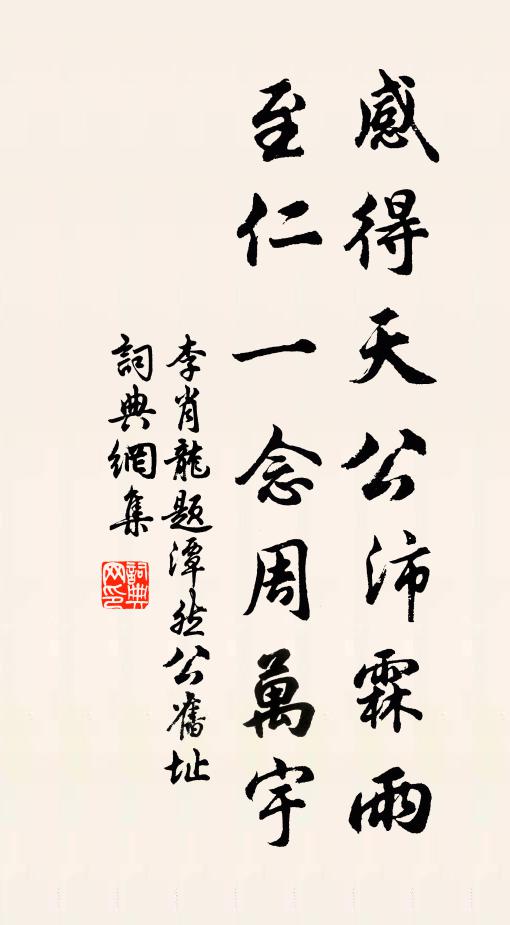 感得天公沛霖雨
至仁一念周萬宇
李肖龍題潭然公舊址
詞典網集
詞典网印